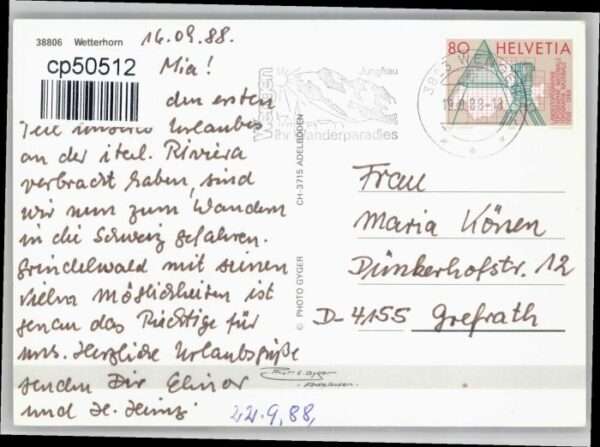 38806 Wetterhorn
16.09.88.
cp50512
Mia!
den ersten
Teil unseres Urlaubes
an der ital. Riviera
verbracht haben, sind
wir nun zum Wandern
in die Schweiz gefahren.
Grindelwald mit seinen
vielen Möglichkeiten ist
genau das Richtige für
uns. Herzliche Urlaubsgrüße
senden Dir Elinor
und H. Heinz.
22.9.88,
CH-3715 ADELBODEN
© PHOTO GYGER
Wengen
Jungfrau
Ihr Wanderparadies
3823 WENGEN
80 HELVETIA
Frau
Maria Könen
Dünkerhofstr. 12
D-4155 Grefrath